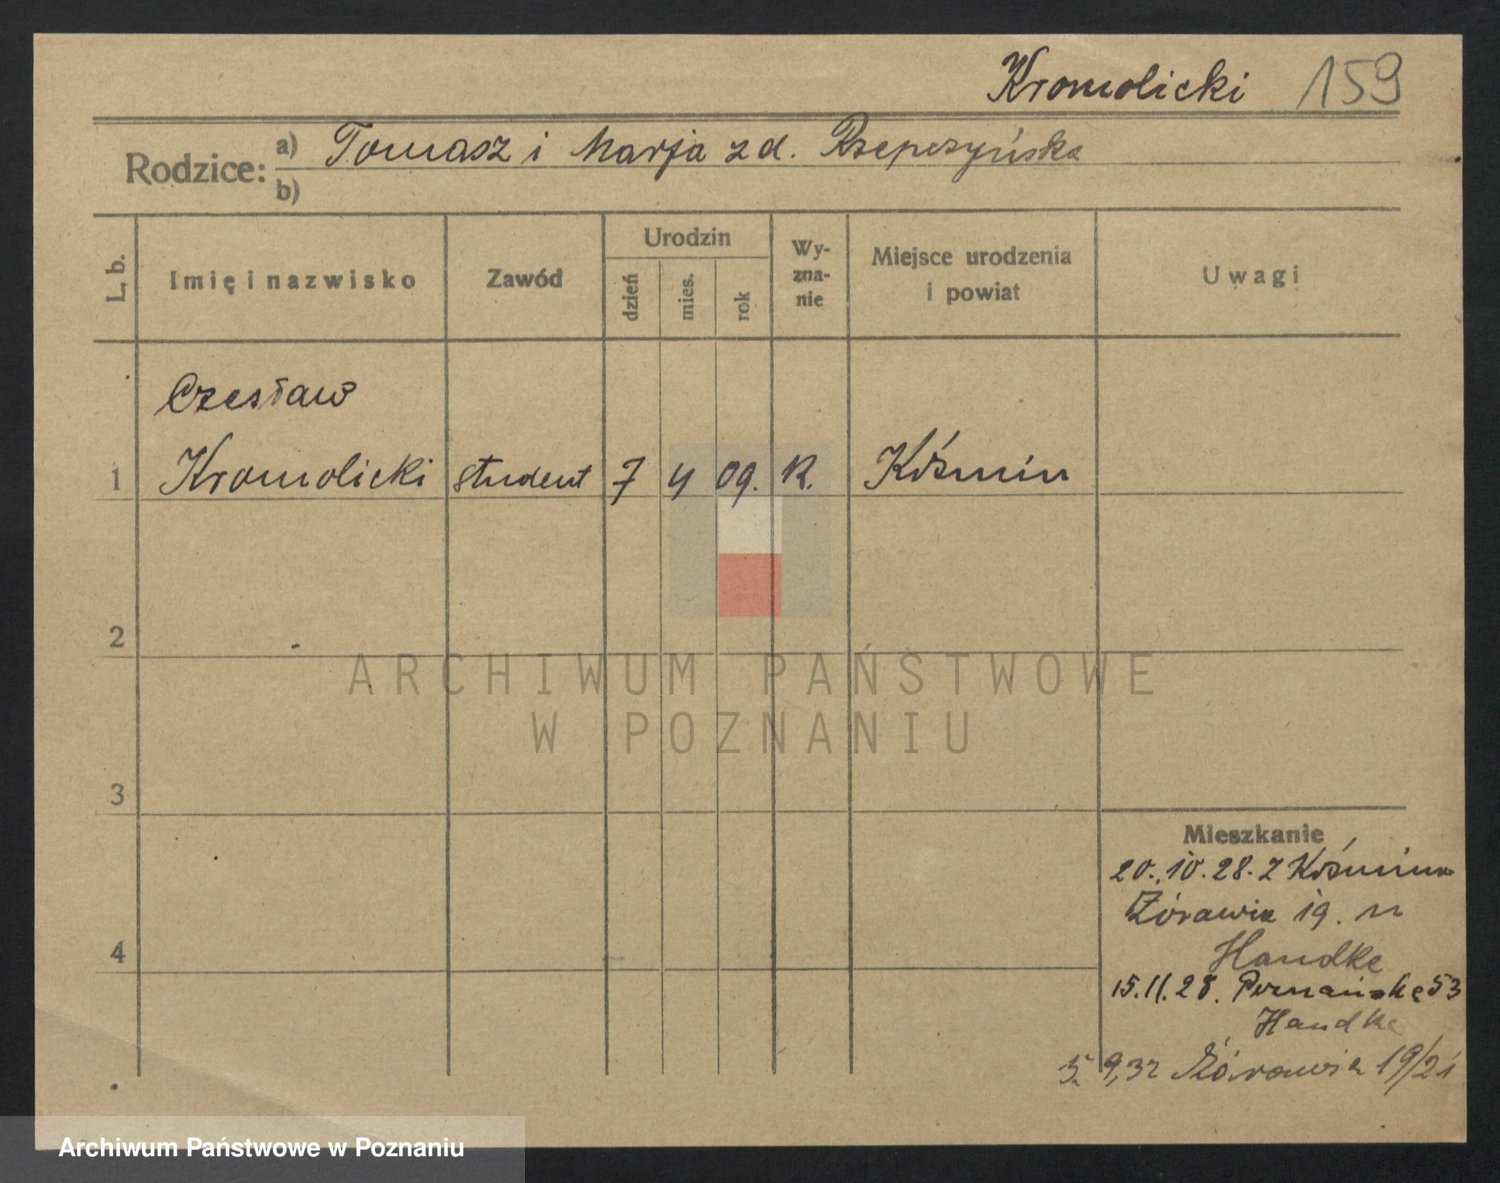 Kromolicki 159
Rodzice: a) Tomasz i Marja z d. Rzepczyńska
b)
L. b.
Imię i nazwisko
Zawód
Urodzin
dzień
mies.
rok
Wy-
zna-
nie
Miejsce urodzenia
i powiat
Uwagi
Czesław
1 Kromolicki student 7 4 09. R. Kóźmin
2
ARCHIWUM PAŃSTWOWE
W POZNANIU
3
Mieszkanie
20.10.28. z Kóźmina
Żórawia 19.
4
Handke
15.11.28. Poznańska 53
Handke
5. 9,32 Żórawia 19/21
Archiwum Państwowe w Poznaniu